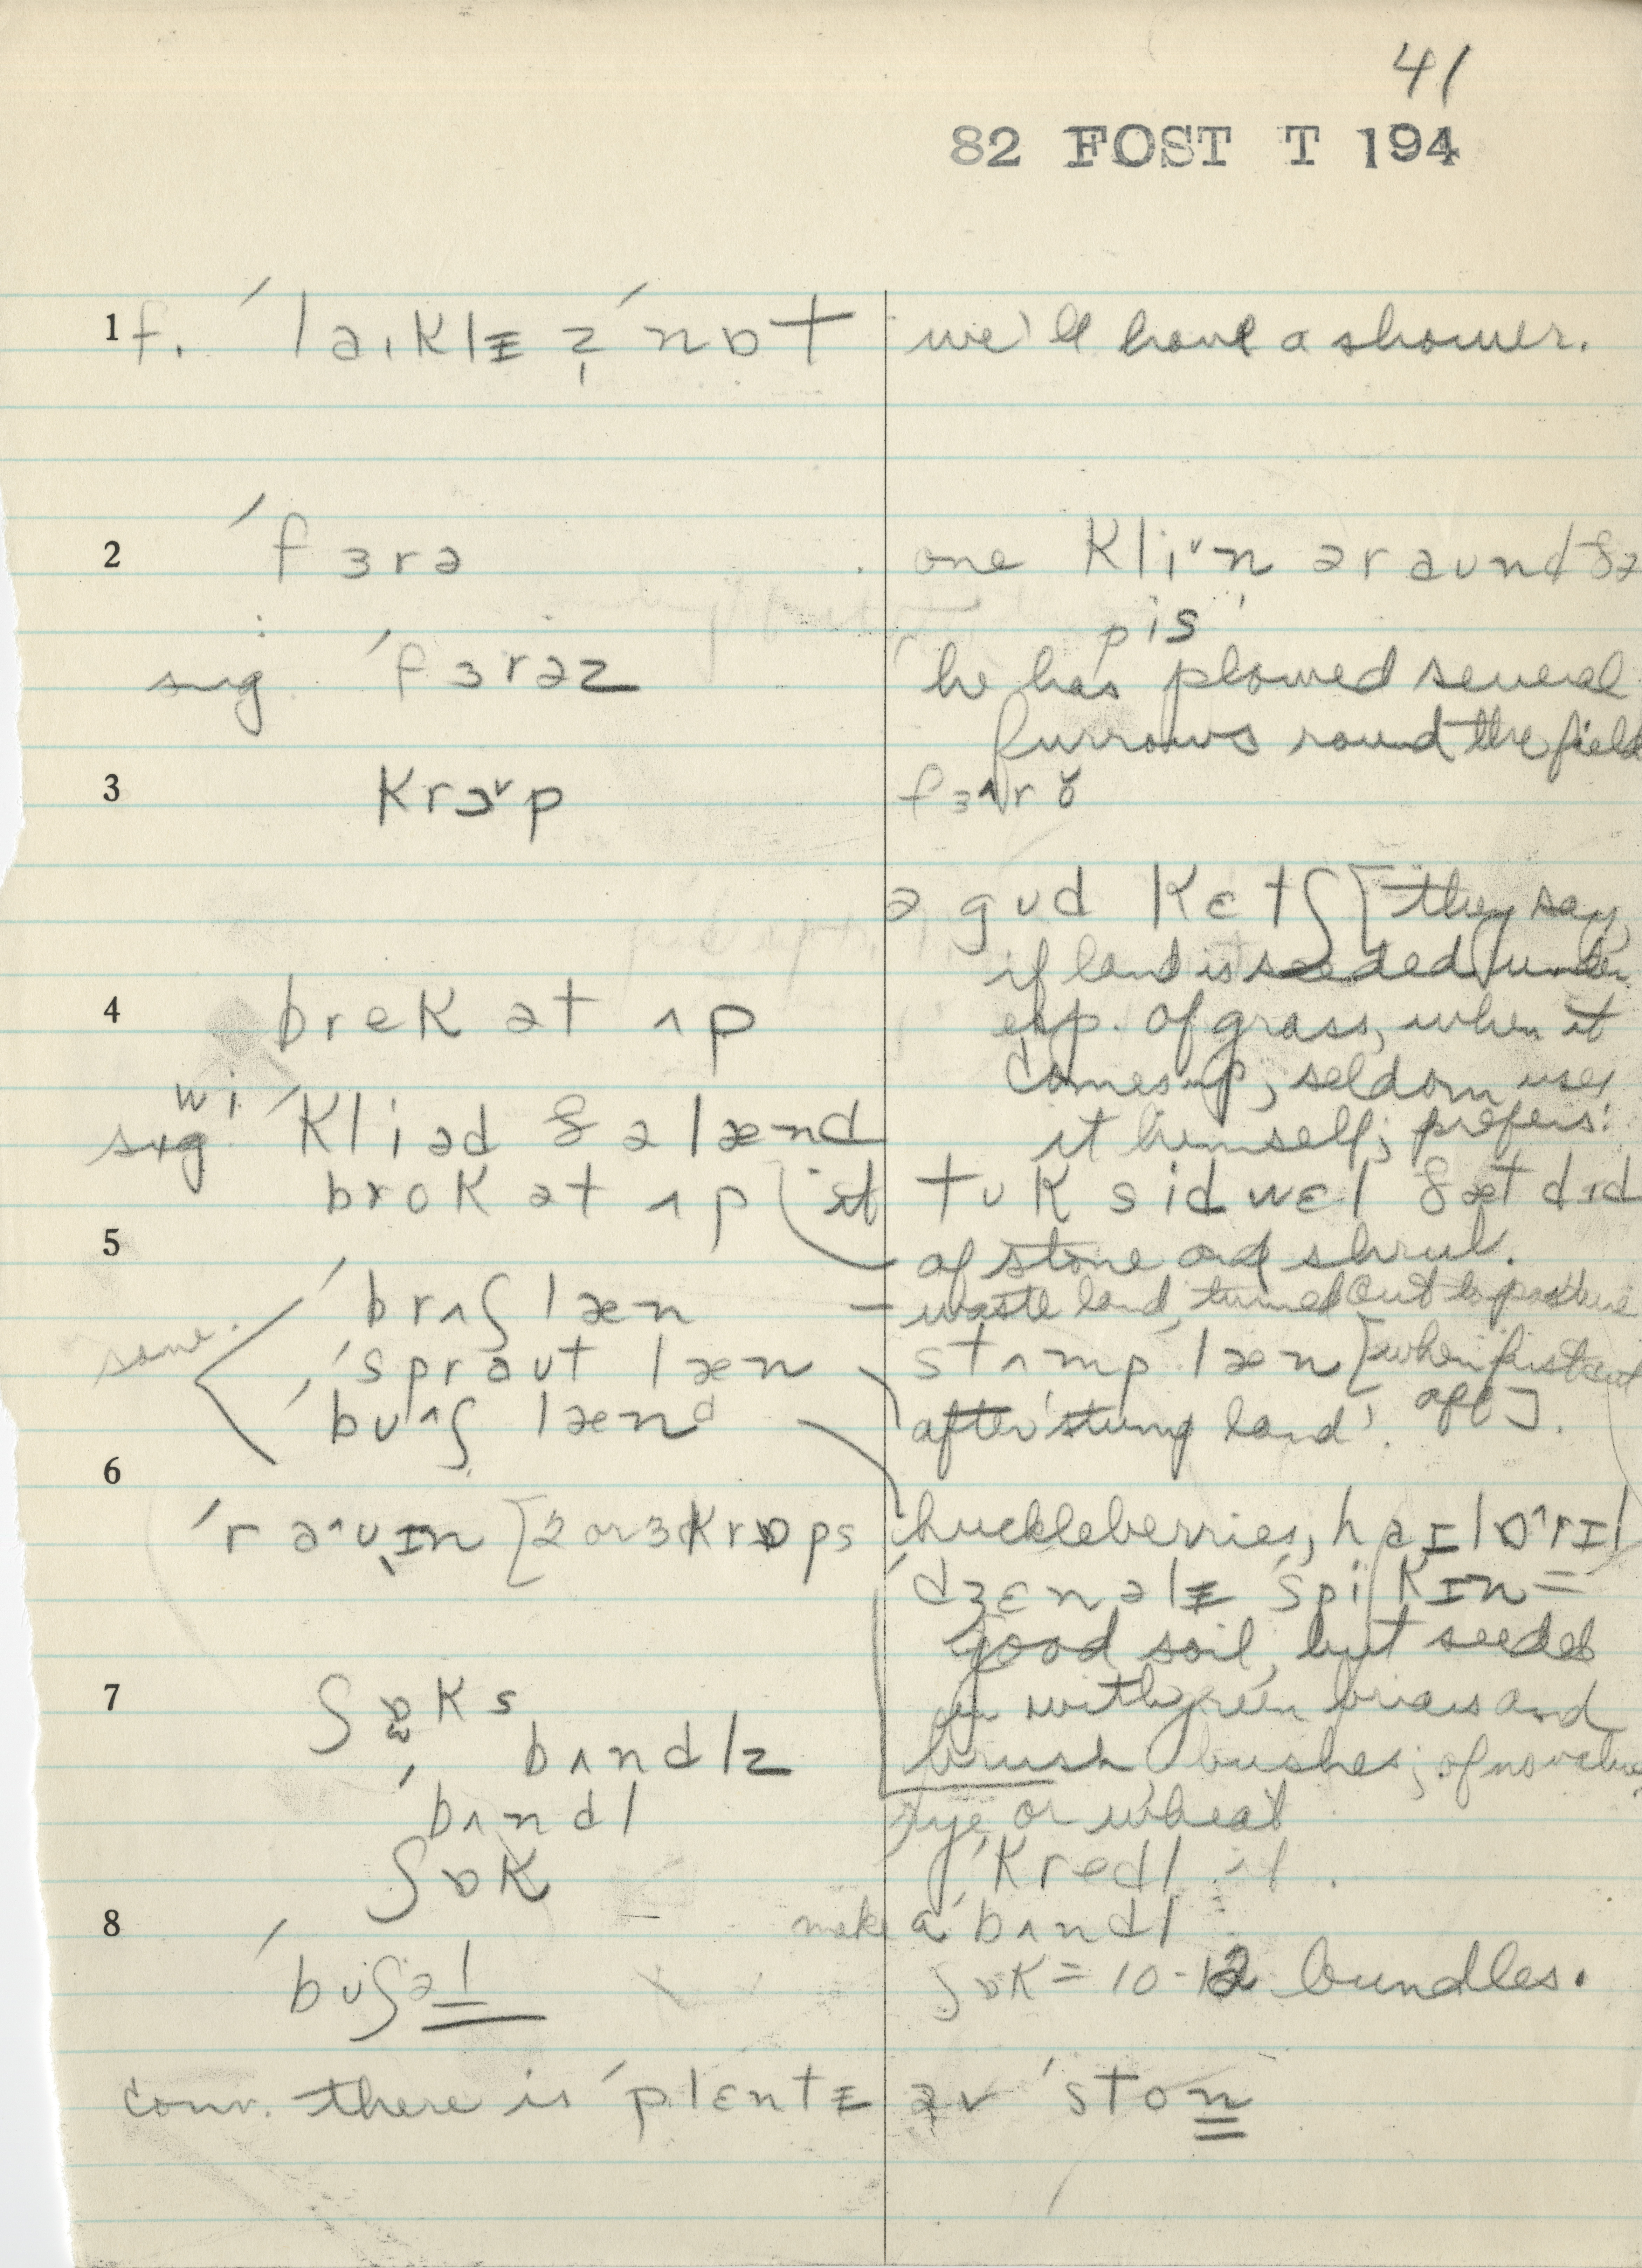 41
82 FOST T 194
1 f. ˈlaɪklɪ z̩ ˈnɒt we'll have a shower.
2 ˈfɜrə one kliˇn əraʊnd ðə
pis
sug. ˈfɜrəz he has plowed several
furrows round the field
3 krɔˇp fɜ^rɤ
ə gʊd kɛtʃ [they say,
if land is seeded
4 brek ət ʌp esp. of grass, when it
comes up, seldom uses
wi
sug. ˈkliəd ðə lænd it himself; prefers:
brok ət ʌp tʊk sid wɛl ðæt did
5 of stone and shrub.
ˈbrʌʃ læn – waste land, turned out to pasture
same. ˈspraʊt læn stʌmp læn [when first cut
ˈbʊ^ʃ lænd after 'stump land'. off].
6
ˈra^ʊɪn [2 or 3 krɒps huckleberries, haɪ lɒ^rɪl
ˈdʒɛnəlɪ ˈspikɪn =
good soil, but seeded
7 ʃɒks in with green briars and
bʌndlz brush bushes; of no value
ˈbʌndl rye or wheat
ʃɒk ˈkredl it.
8 make a ˈbʌndl
bʊʃəl ʃɒk = 10-12 bundles.
conv. there is ˈplɛntɪ əv ˈston